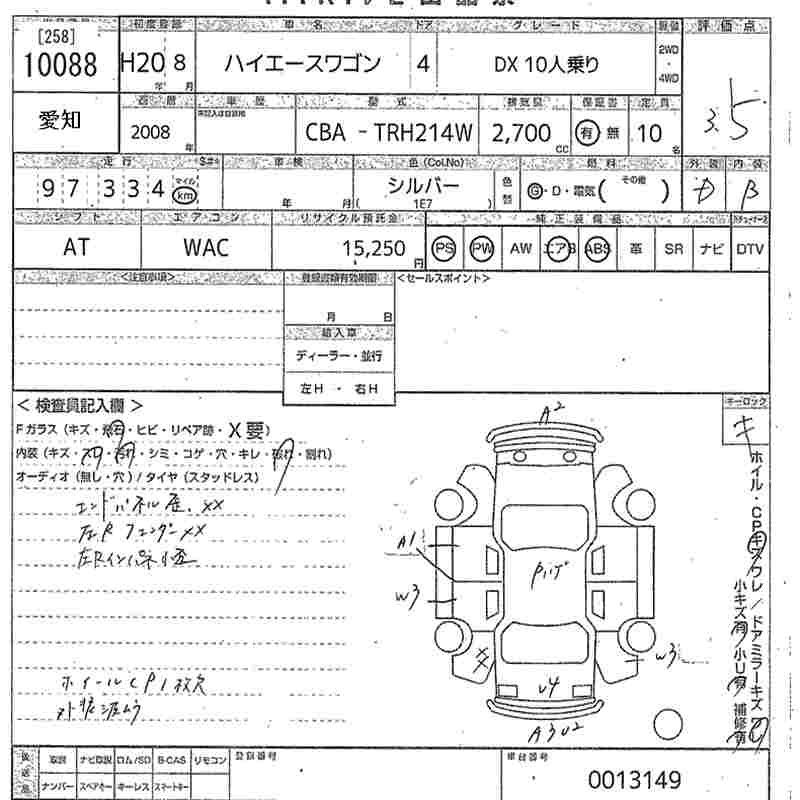 [258]
10088
初度登録 車名 ドア グレード 装備 評価点
H20 8 ハイエースワゴン 4 DX 10人乗り 2WD・4WD
年 月
愛知
西暦 車歴 型式 排気量 保証書 定員
3.5
2008 年 CBA - TRH214W 2,700 cc 有 無 10 名
走行 車検 色(Col.No) 燃料 外装 内装
97334 マイル km 年 月 シルバー ( 1E7 色替 G・D・電気( その他 ) D B
シフト エアコン リサイクル預託金 純正装備品
AT WAC 15,250 円 PS PW AW エアB ABS 革 SR ナビ DTV
<注意事項> 登録書類有効期限 <セールスポイント>
月 日
輸入車
ディーラー・並行
左H ・ 右H
< 検査員記入欄 >
キーロック
キ
Fガラス (キズ・飛石・ヒビ・リペア跡・X要)
内装 (キズ・スリ・汚れ・シミ・コゲ・穴・キレ・破れ・割れ)
オーディオ (無し・穴) / タイヤ (スタッドレス)
エンドパネル歪、XX
左Rフェンダー XX
左Rインパネ歪
ホイールCP1枚欠
A2
A1
W3
W3
U4
A3U2
ホイル・CPキズワレ/ドアミラーキズワレ
小キズ有 小U有 補修有
取説 ナビ取説 ロム/SD B-CAS リモコン 登録番号 車台番号
ナンバー スペアキー キーレス スマートキー
0013149